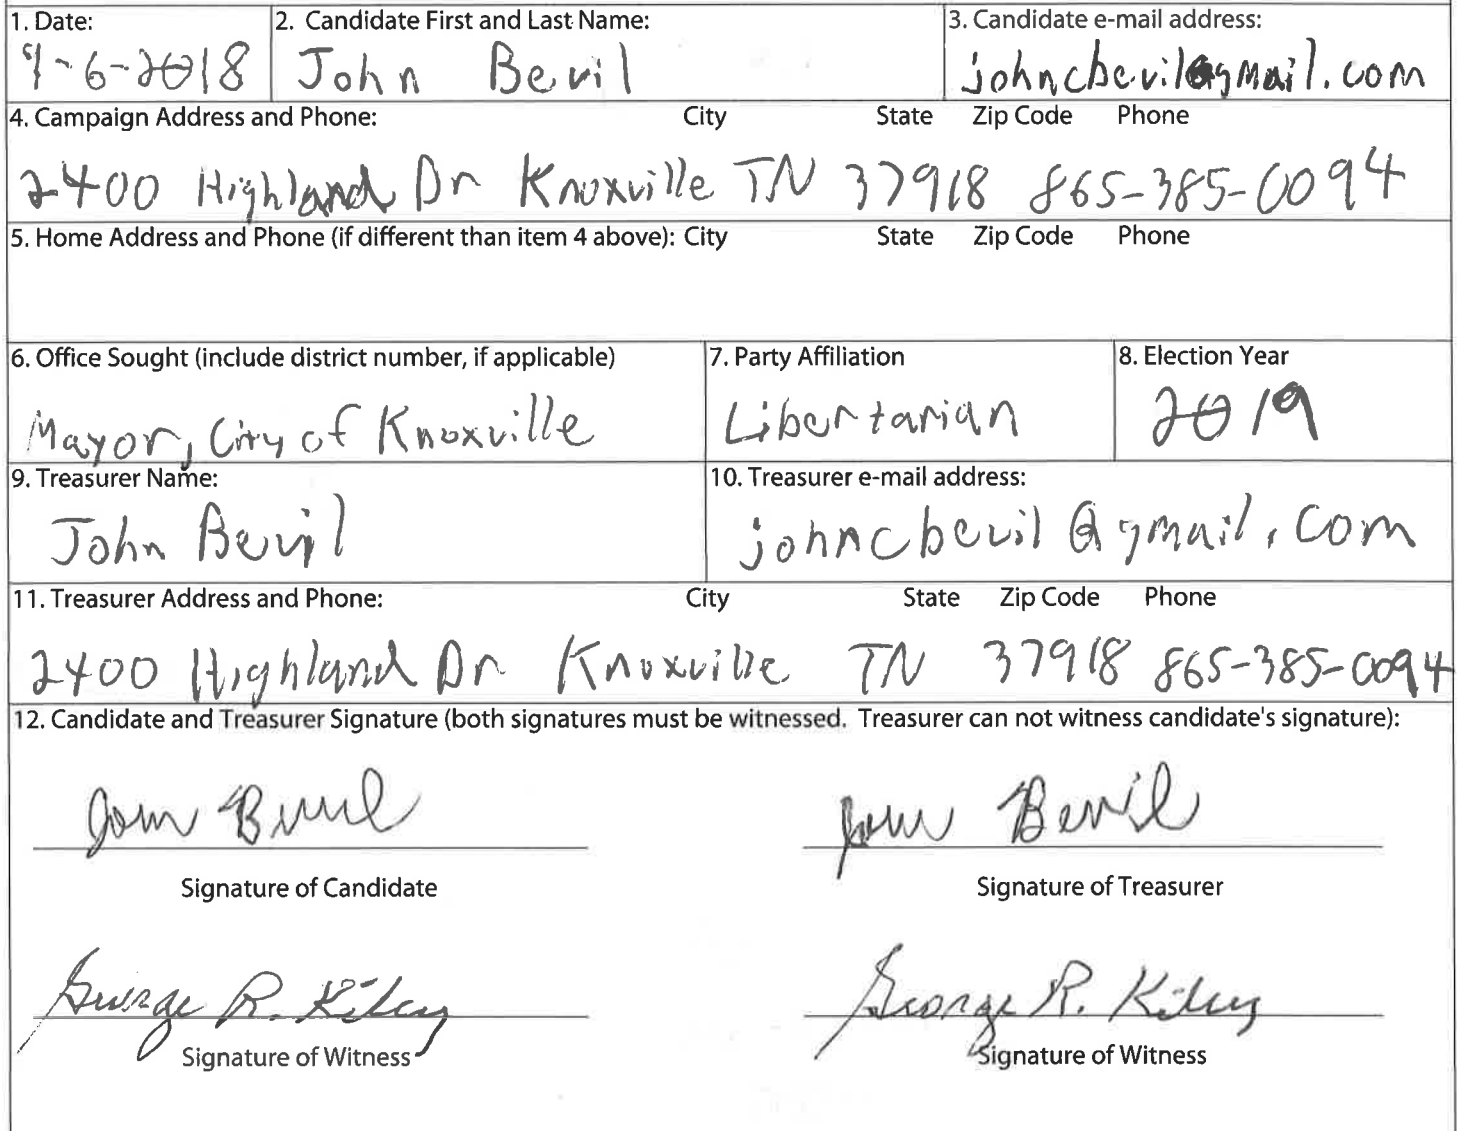 1. Date: 2. Candidate First and Last Name: 3. Candidate e-mail address:
9-6-2018 John Bevil johncbevil@gmail.com
4. Campaign Address and Phone: City State Zip Code Phone
2400 Highland Dr Knoxville TN 37918 865-385-0094
5. Home Address and Phone (if different than item 4 above): City State Zip Code Phone
6. Office Sought (include district number, if applicable) 7. Party Affiliation 8. Election Year
Mayor, City of Knoxville Libertarian 2019
9. Treasurer Name: 10. Treasurer e-mail address:
John Bevil johncbevil@gmail.com
11. Treasurer Address and Phone: City State Zip Code Phone
2400 Highland Dr Knoxville TN 37918 865-385-0094
12. Candidate and Treasurer Signature (both signatures must be witnessed. Treasurer can not witness candidate's signature):
John Bevil John Bevil
Signature of Candidate Signature of Treasurer
George R. Kiley George R. Kiley
Signature of Witness Signature of Witness